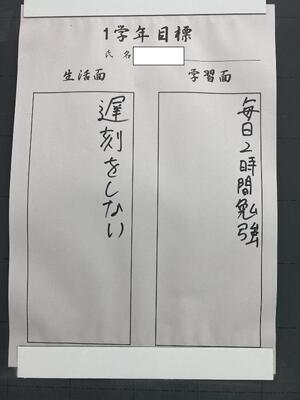 1学年目標
氏名
学習面
毎日2時間勉強
生活面
遅刻をしない